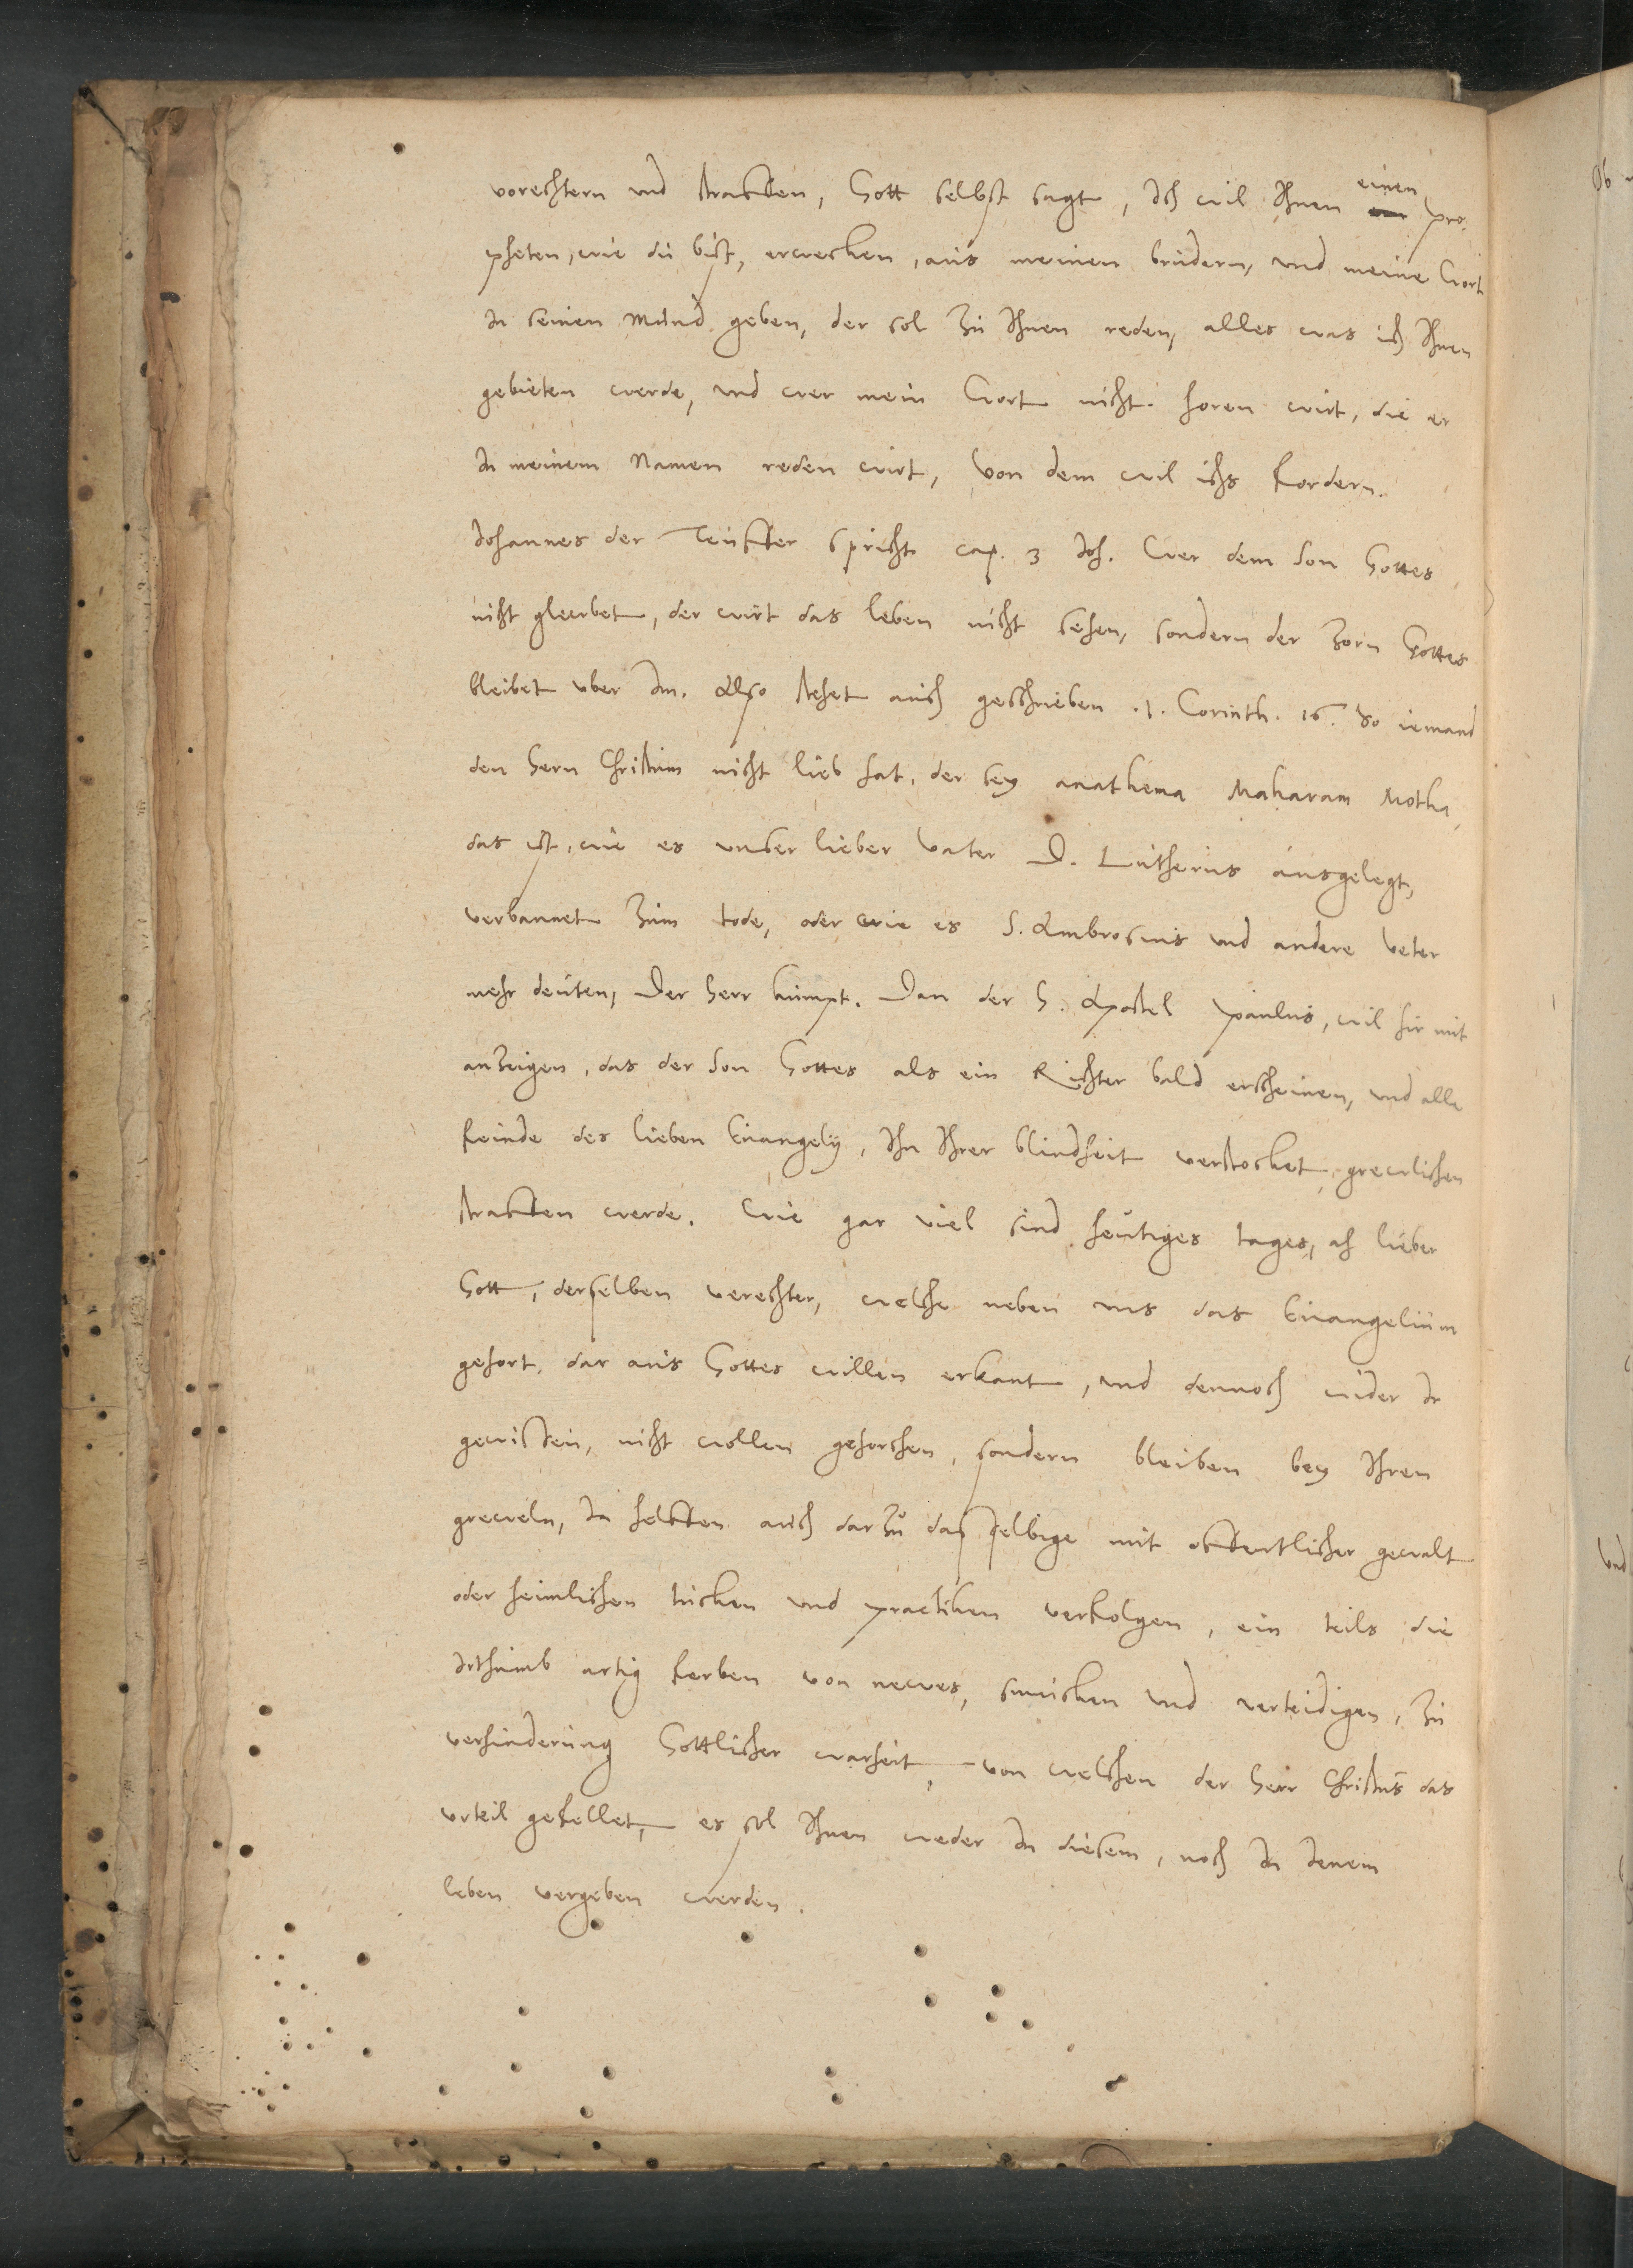 vorechtern vnd straffen, Gott selbst sagt, Ich wil Ihnen einen pro-
pheten, wie du bist, erwecken, aus meinen brudern, vnd meine Wort
In seinen Mund geben, der sol zu Ihnen reden, alles was ich Ihnen
gebieten werde, vnd wer mein Wort nicht horen wirt, die er
In meinem Namen reden wirt, Von dem wil ichs fordern.
Johannes der Teuffer spricht cap. 3 Joh. Wer dem Son Gottes
nicht glewbet, der wirt das leben nicht sehen, sondern der Zorn Gottes
bleibet vber Im. Also stehet auch geschrieben .1. Corinth. 16. So iemand
den Hern Christum nicht lieb hat, der sey anathema Maharam Motha,
das ist, wie es vnser lieber Vater D. Lutherus ausgelegt,
verbannet zum tode, oder wie es S. Ambrosius vnd andere Veter
mehr deuten, Der Herr kumpt. Dan der H. Apostel Paulus, wil hir mit
anzeigen, das der Son Gottes als ein Richter bald erscheinen, vnd alle
feinde des lieben Euangelij, Ihn Ihrer blindheit verstocket, grewlichen
straffen werde. Wie gar viel sind heutiges tages, ah lieber
Gott, derselben verechter, welche neben vns das Euangelium
gehort, dar aus Gottes willen erkant, vnd dennoch wider Ir
gewissen, nicht wollen gehorchen, sondern bleiben bey Ihren
greweln, Ia helffen auch dar zu das selbige mit offentlicher gewalt
oder heimlichen tucken vnd practiken verfolgen, ein teils die
Irthumb artig ferben von newes, smucken vnd verteidigen, zu
verhinderung Gottlicher warheit, von welchen der Herr Christus das
vrteil gefellet, es sol Ihnen weder In diesem, noch In Ienem
leben vergeben werden.